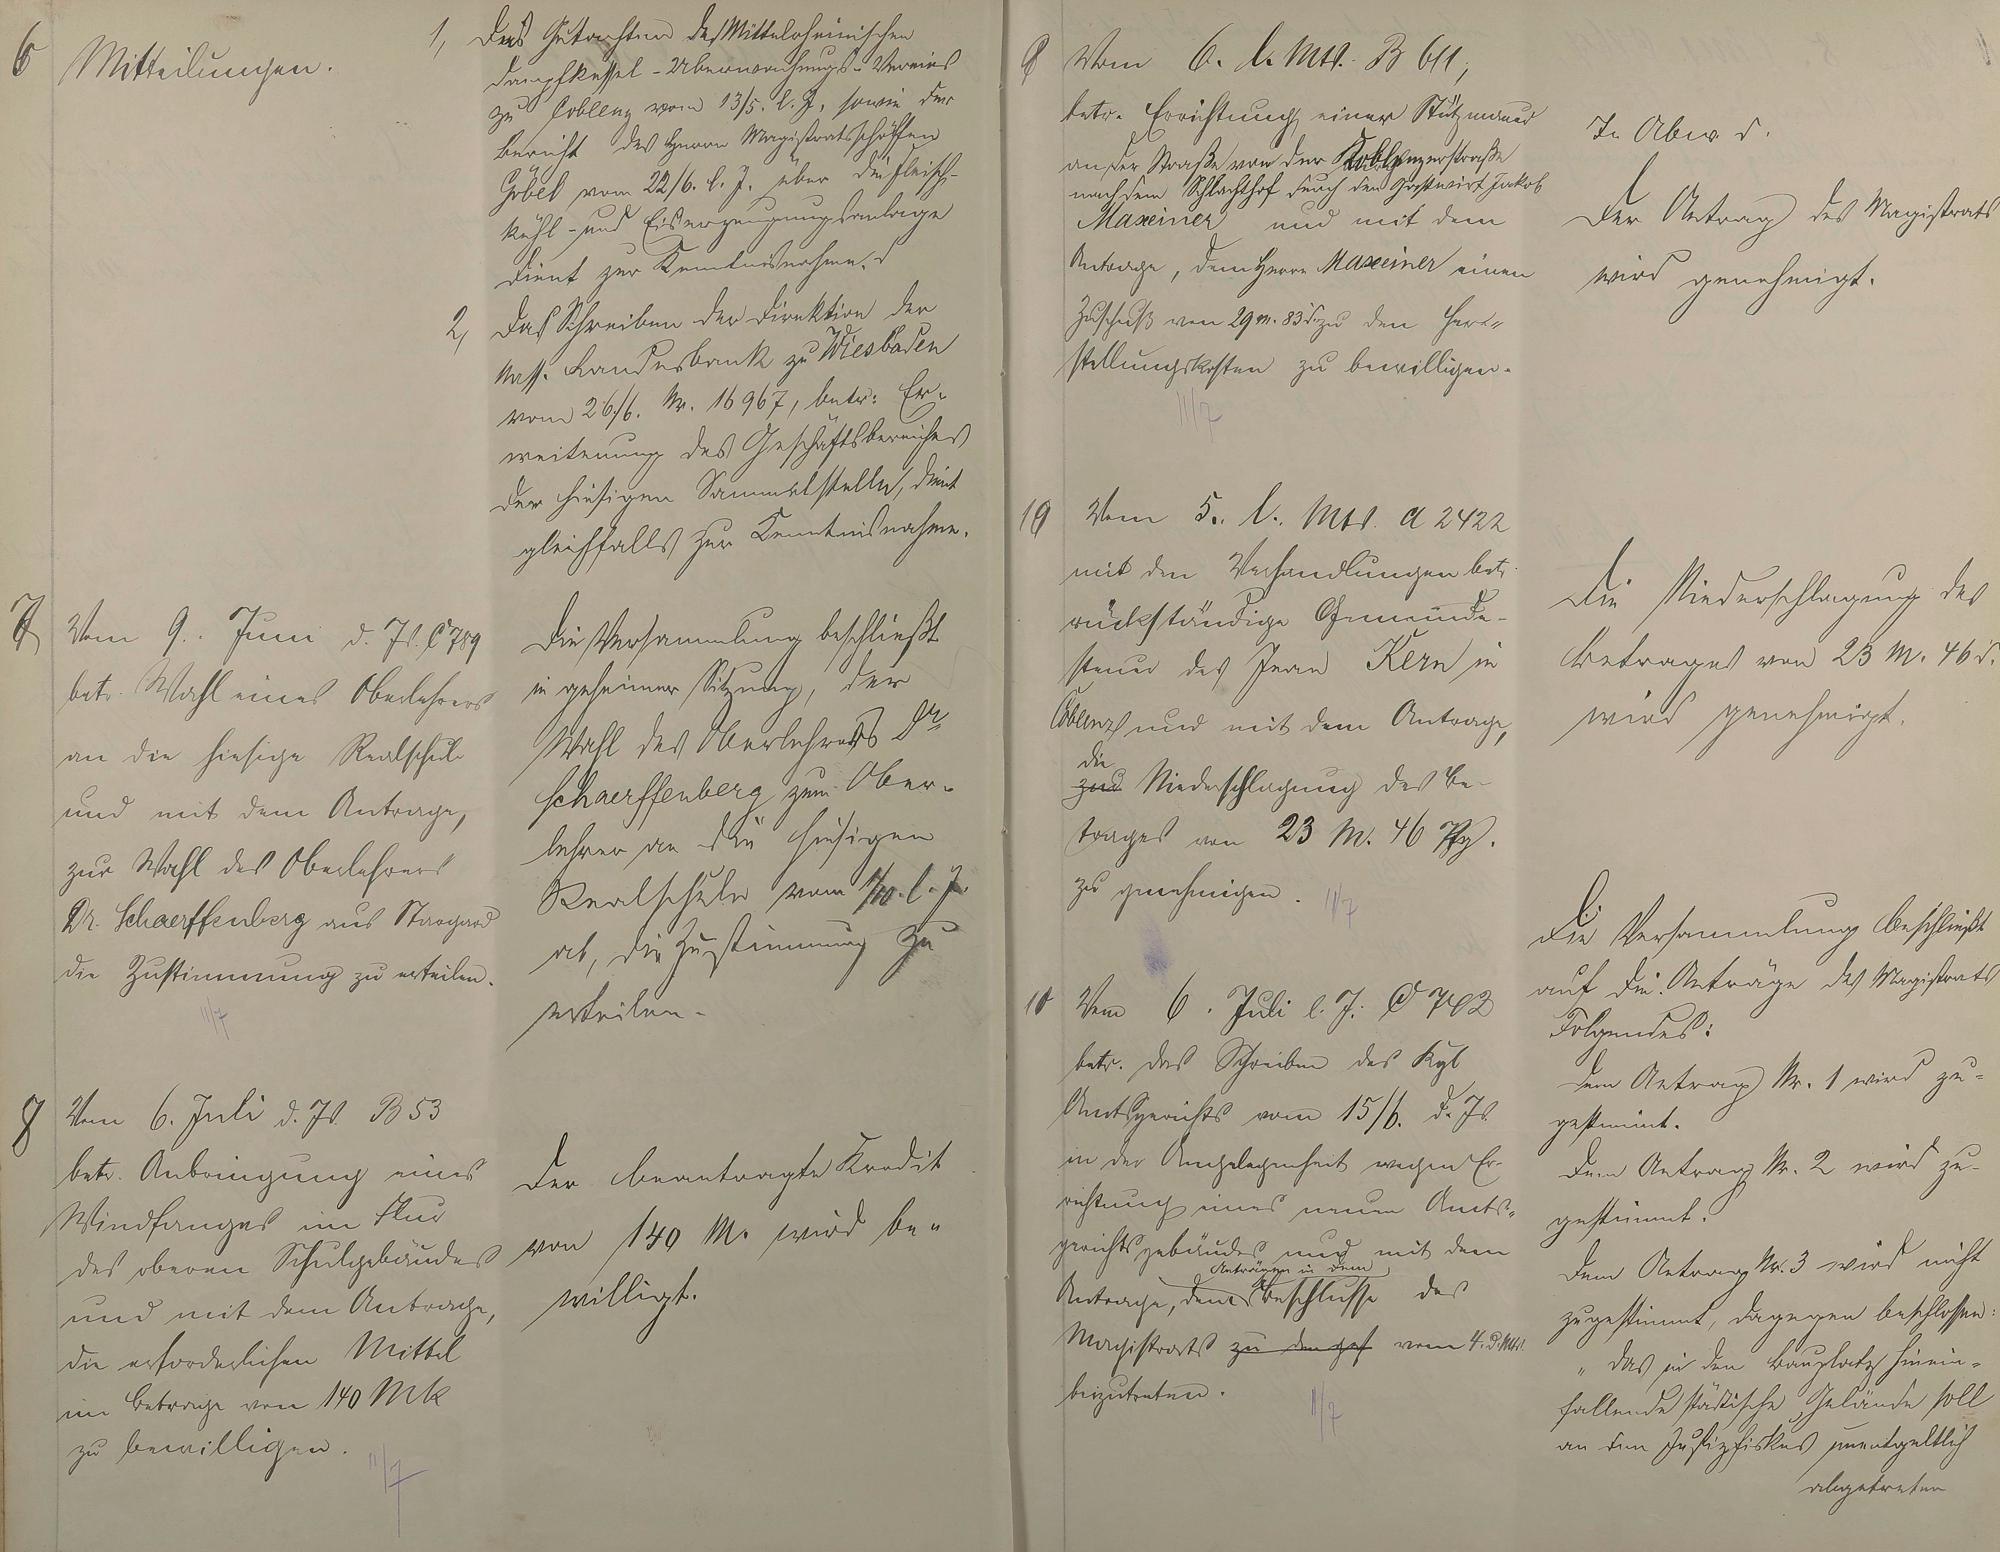 6
Mitteilungen.
1, Das Gutachten des Mittelrheinischen
Dampfkessel-Überwachungs-Vereins
zu Coblenz vom 13/5. l. J., sowie der
Bericht des Herrn Magistratsschöffen
Göbel vom 22/6. l. J. über die Fleisch-
kühl- und Eiserzeugungsanlage
dient zur Kenntnisnahme.
2, Das Schreiben der Direktion der
Nass. Landesbank zu Wiesbaden
vom 26/6. Nr. 16967, betr: Er-
weiterung des Geschäftsbereiches
der hiesigen Sammelstelle, dient
gleichfalls zur Kenntnisnahme.
7
Vom 9. Juni d. Js. C 789
betr. Wahl eines Oberlehrers
an die hiesige Realschule
und mit dem Antrage,
zur Wahl des Oberlehrers
Dr. Schaerffenberg aus Stargard
die Zustimmung zu erteilen.
11/7
Die Versammlung beschließt
in geheimer Sitzung, der
Wahl des Oberlehrers Dr.
Schaerffenberg zum Ober-
lehrer an die hiesigen
Realschule vom 1/10. l. J.
ab, die Zustimmung zu
erteilen.
8
Vom 6. Juli d. Js. B 53
betr. Anbringung eines
Windfanges im Flur
des oberen Schulgebäudes
und mit dem Antrage,
die erforderlichen Mittel
im Betrage von 140 Mk
zu bewilligen.
11/7
Der beantragte Kredit
von 140 M. wird be-
willigt.
9
Vom 6. l. Mts. B 611,
betr. Errichtung einer Stützmauer
an der Straße von der Koblenzerstraße
nach dem Schlachthof durch den Gastwirt Jakob
Maxeiner und mit dem
Antrage, dem Herrn Maxeiner einen
Zuschuß von 29 M. 83 d. zu den Her-
stellungskosten zu bewilligen.
11/7
Der Antrag des Magistrats
wird genehmigt.
10
Vom 5. l. Mts. A 2422
mit den Verhandlungen betr.
rückständige Gemeinde-
steuer des Jean Kern in
Coblenz und mit dem Antrage,
die
zur Niederschlagung des Be-
trages von 23 M. 46 Pfg.
zu genehmigen.
11/7
Die Niederschlagung des
Betrages von 23 M. 46 d.
wird genehmigt.
Vom 6. Juli l. J.
betr. das Schreiben des Kgl
Amtsgerichts vom 15/6. d. Js.
in der Angelegenheit wegen Er-
richtung eines neuen Amts-
gerichtsgebäudes und mit dem
Anträgen in dem
Antrage, dem Beschlusse des
Magistrats zu dem vom 4. d. Mts.
beizutreten.
11/7
Die Versammlung beschließt
auf die Anträge des Magistrats
Folgendes:
Dem Antrag Nr. 1 wird zu-
gestimmt.
Dem Antrag Nr. 2 wird zu-
gestimmt.
Dem Antrag Nr. 3 wird nicht
zugestimmt, dagegen beschlossen:
„Das in den Bauplatz hinein-
fallende städtische Gelände soll
an den Justizfiskus unentgeltlich
abgetreten